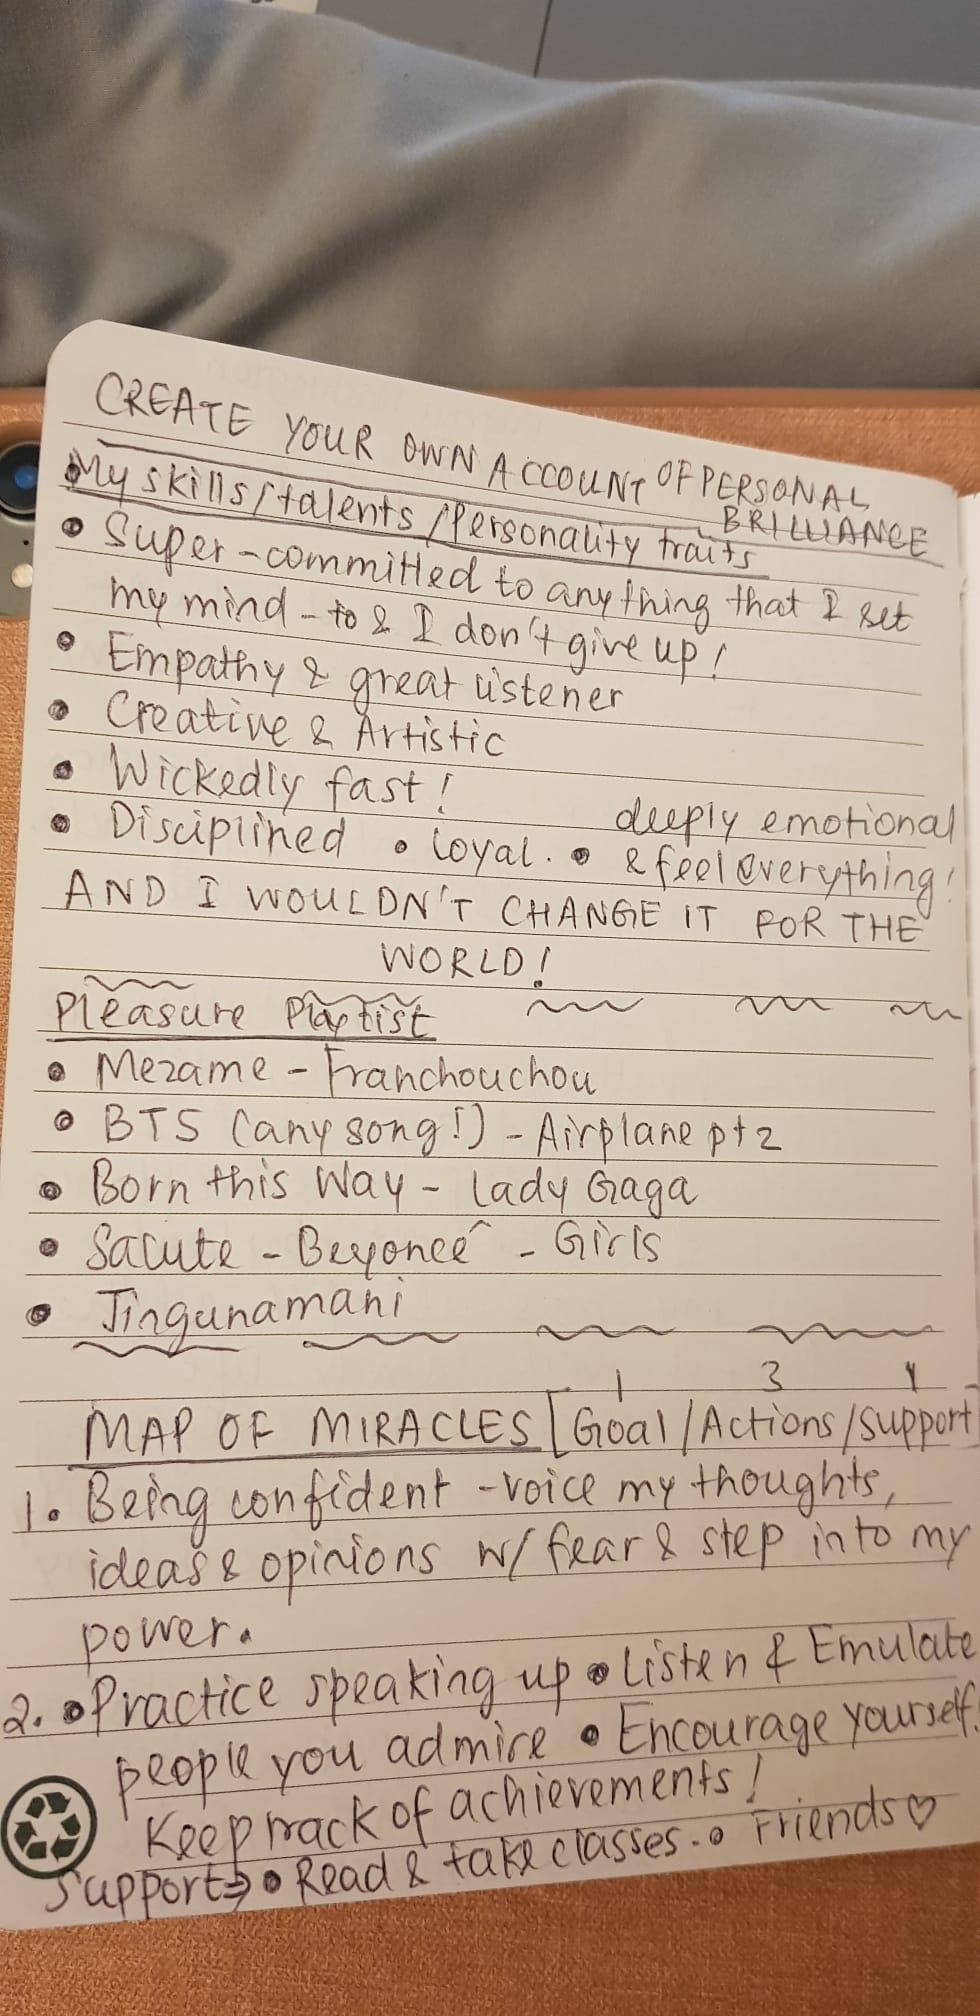 CREATE YOUR OWN ACCOUNT OF PERSONAL
BRILLIANCE
• My skills/talents/Personality traits
• Super-committed to anything that I set
my mind-to & I don't give up!
• Empathy & great listener
• Creative & Artistic
• Wickedly fast!
• Disciplined • Loyal. • deeply emotional
& feel everything!
AND I WOULDN'T CHANGE IT FOR THE
WORLD!
Pleasure Playlist
• Mezame - Franchouchou
• BTS (any song!) - Airplane pt 2
• Born this Way - Lady Gaga
• Salute - Beyonceé - Girls
• Jingunamani
1 3
MAP OF MIRACLES [Goal/Actions/Support
1. Being confident - voice my thoughts,
ideas & opinions w/ fear & step into my
power.
2. • Practice speaking up • Listen & Emulate
people you admire • Encourage yourself!
Keep track of achievements!
Support⇒ • Read & take classes. • Friends ♡